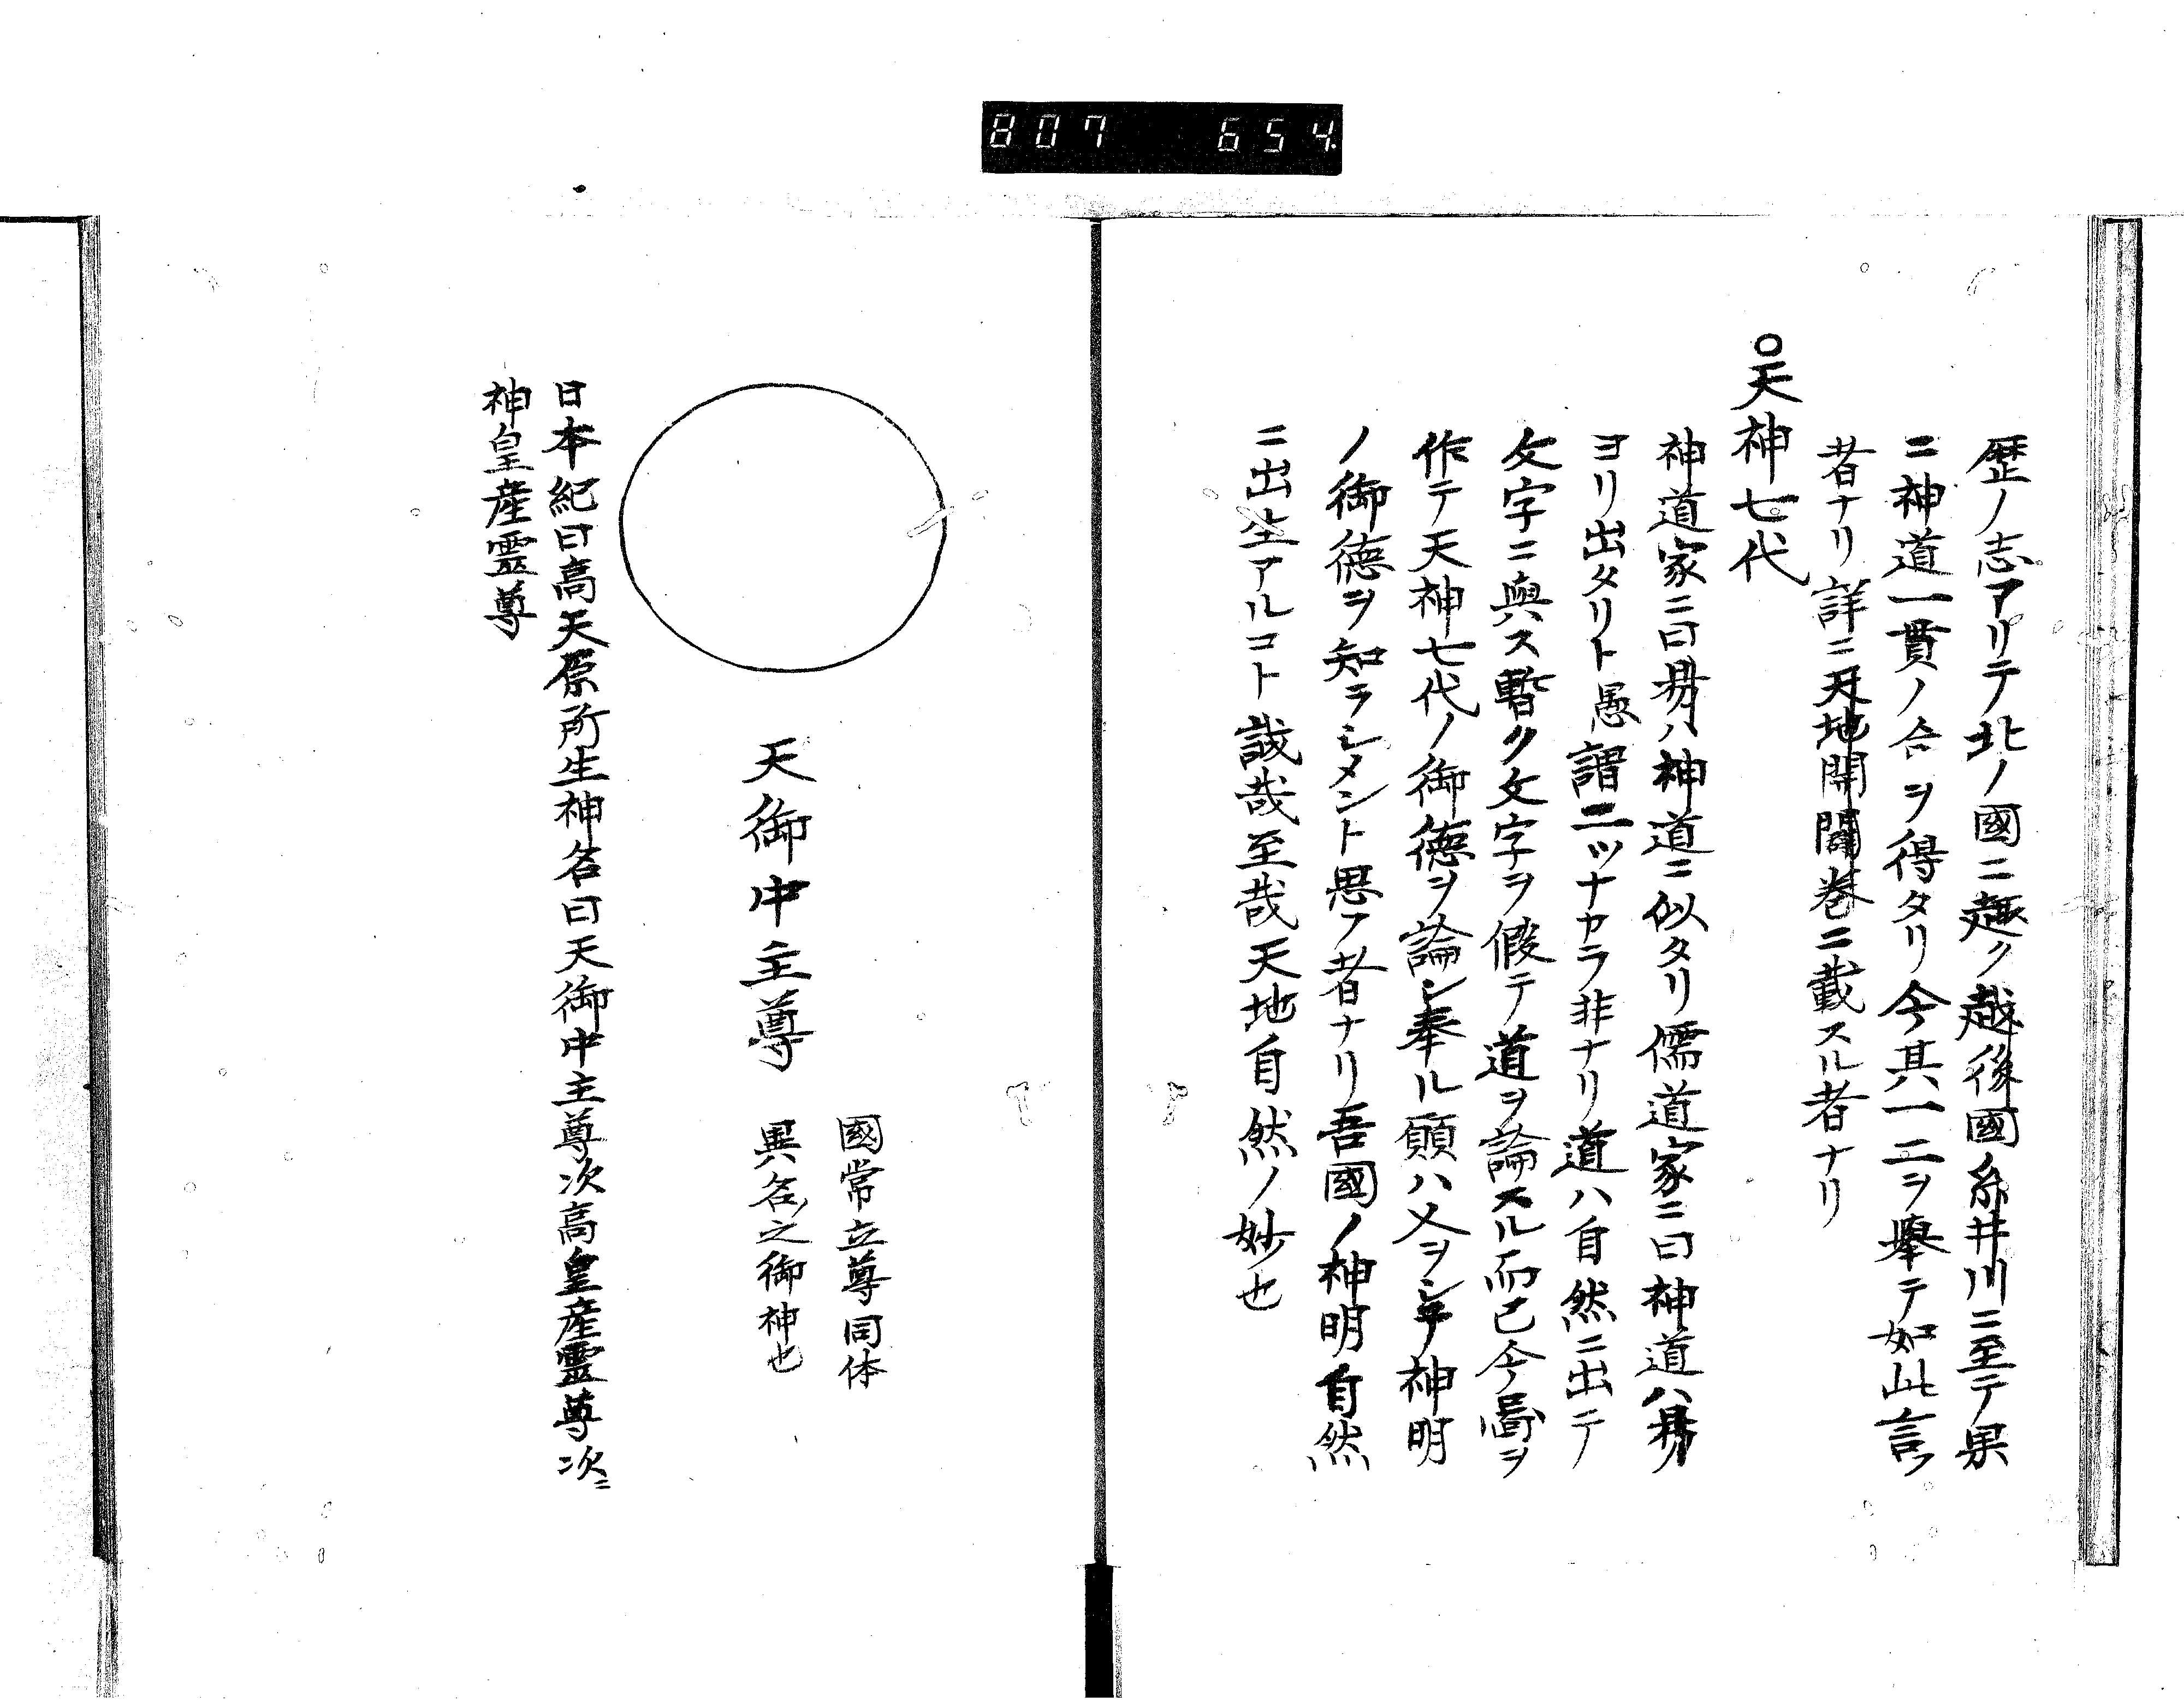 807 654
歴ノ志アリテ北ノ國ニ趣ク越後國糸井川ニ至テ果
ニ神道一貫ノ合ヲ得タリ今其一二ヲ舉テ如此言フ
者ナリ詳ニ天地開闢巻ニ載スル者ナリ
○天神七代
神道家ニ曰易ハ神道ニ似タリ儒道家ニ曰神道ハ易
ヨリ出タリト愚謂二ツナカラ非ナリ道ハ自然ニ出テ
文字ニ與ス暫ク文字ヲ假テ道ヲ論スル而已今圖ヲ
作テ天神七代ノ御德ヲ論シ奉ル願ハ人ヲシテ神明
ノ御德ヲ知ラシメント思フ者ナリ吾國ノ神明自然
ニ出生アルコト誠哉至哉天地自然ノ妙也
天御中主尊
國常立尊同体
異名之御神也
日本紀曰高天原所生神名曰天御中主尊次高皇産靈尊次ニ
神皇産靈尊